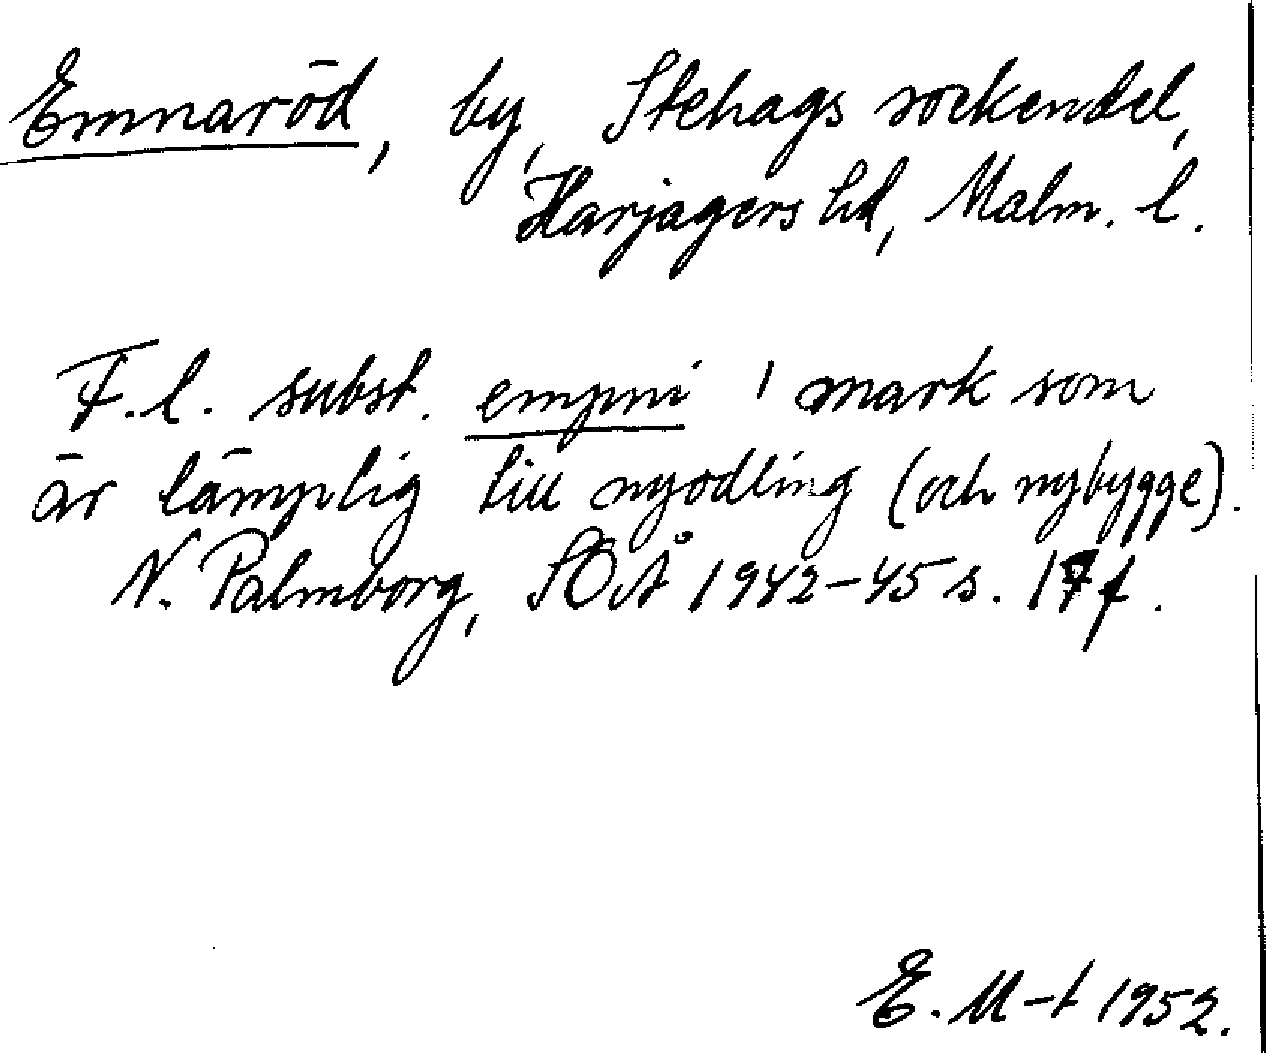 Emnaröd, by, Stehags sockendel,
Harjagers hd, Malm. l.
F.l. subst. empni 'mark som
är lämplig till nyodling (och nybygge).
N. Palmborg, SOÅ 1942-45 s. 17 f.
E. M-t 1952.